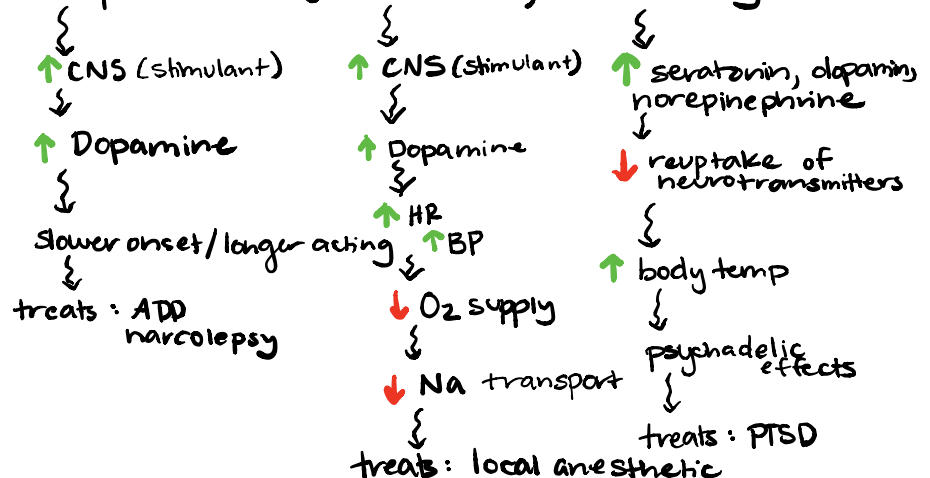 ↑ CNS (stimulant)
↑ Dopamine
slower onset/longer acting
treats: ADD
narcolepsy
↑ CNS (stimulant)
↑ Dopamine
↑ HR
↑ BP
↓ O2 supply
↓ Na transport
treats: local anesthetic
↑ seratonin, dopamin,
norepinephrine
↓ reuptake of
neurotransmitters
↑ body temp
psychadelic
effects
treats: PTSD